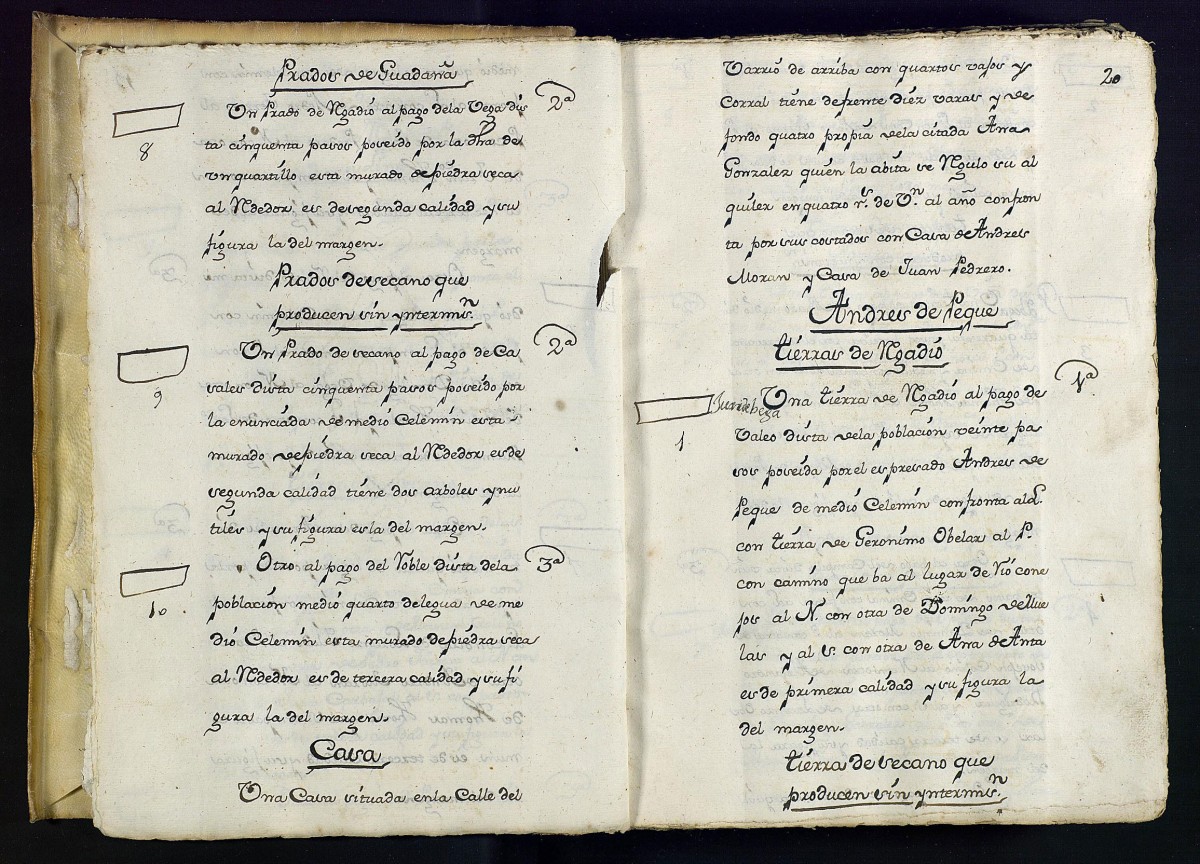 Prados de Guadaña
Un Prado de Rgadio al pago dela Vega dis
2ª
ta cinquenta pasos poseido por la dha de
8
un quartillo esta murado de piedra seca
al Rdedor es de segunda calidad y su
figura la del margen.
Prados de secano que
producen sin yntermis.n
Un Prado de secano al pago de Ca
2ª
sales dista cinquenta pasos poseido por
9
la enunciada de medio Celemin esta
murado de piedra seca al Rdedor es de
segunda calidad tiene dos arboles ynu
tiles y su figura es la del margen.
Otro al pago del Roble dista dela
3ª
poblacion medio quarto de legua de me
10
dio Celemin esta murado de piedra seca
al Rdedor es de tercera calidad y su fi
gura la del margen.
Casa
Una Casa situada enla Calle del
20
Varrio de arriba con quartos vajos y
Corral tiene de frente diez varas y de
fondo quatro propia dela citada Ana
Gonzalez quien la abita se Rgulo su al
quiler en quatro r.s de V.n al año confron
ta por sus costados con Casa de Andres
Moran y Casa de Juan Pedrero.
Andres de Peque
tierras de Rgadio
Una tierra de Rgadio al pago de
1ª
Valeo dista dela poblacion veinte pa
1
sos poseida por el espresado Andres de
Peque de medio Celemin confronta al L.
con tierra de Geronimo Obelar al P.
con camino que ba al lugar de Rioconē
jos al N. con otra de Domingo de Mue
las y al S. con otra de Ana de Anta
es de primera calidad y su figura la
del margen.
tierra de secano que
producen sin yntermis.n